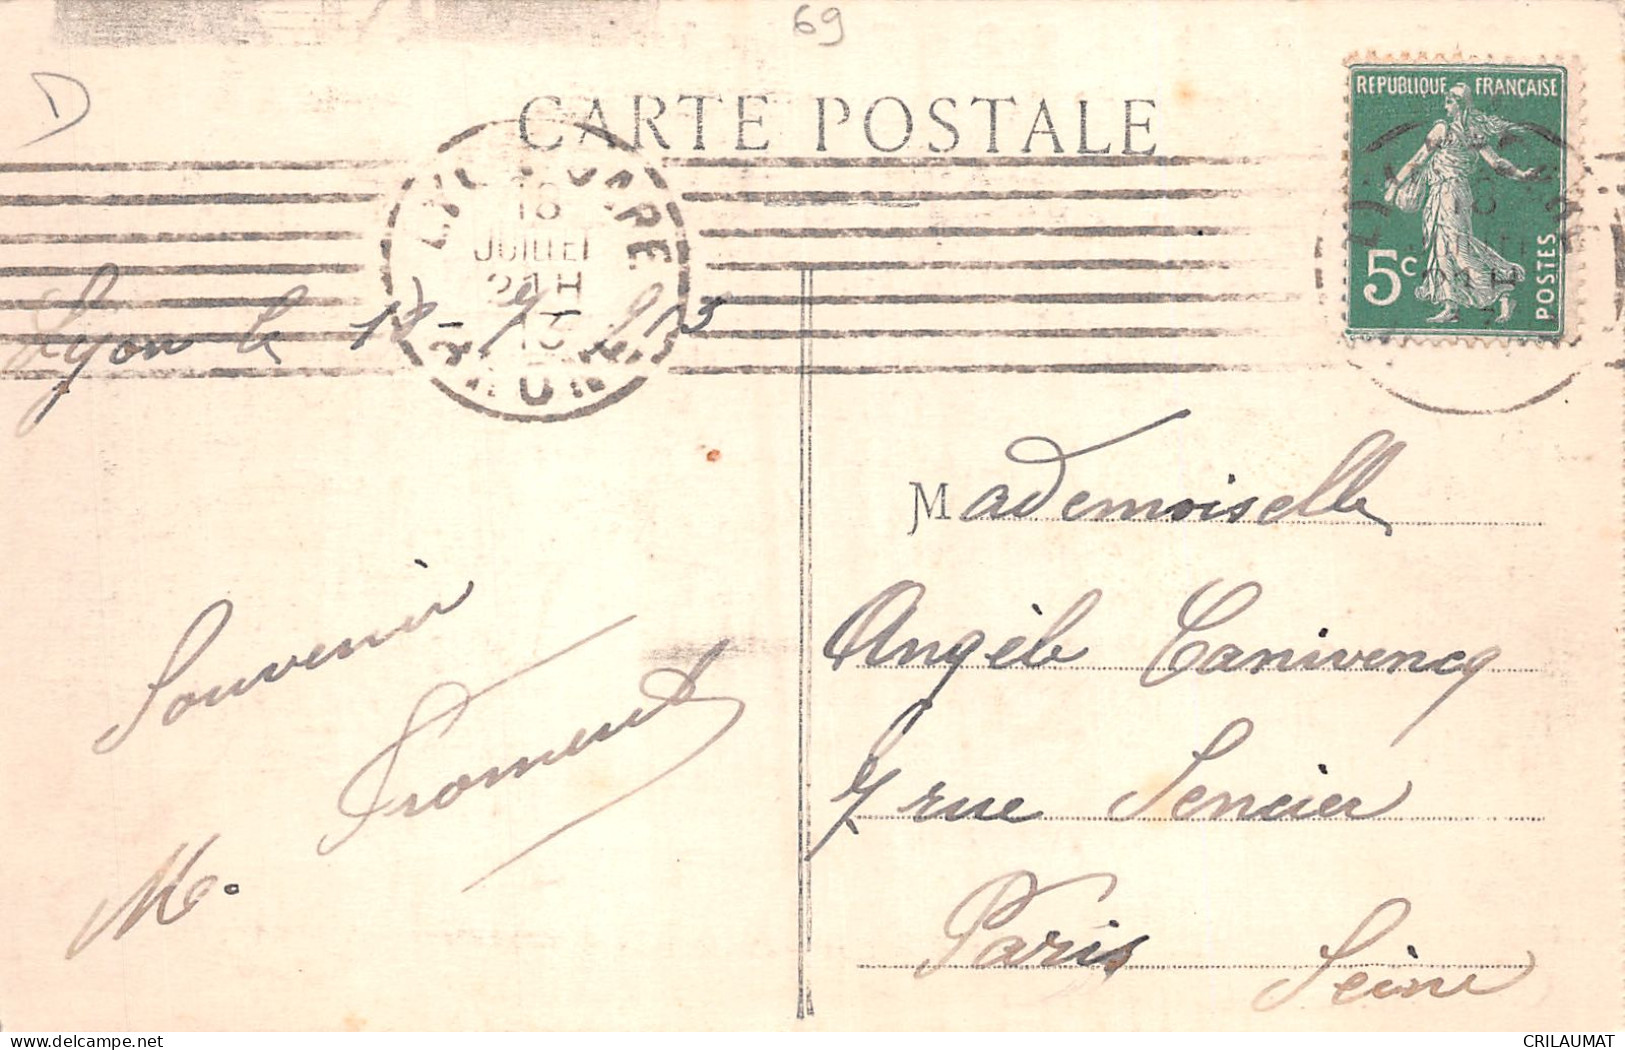 69
D
CARTE POSTALE
REPUBLIQUE FRANÇAISE
5c
POSTES
LYON GARE
18
JUILLET
21 H
13
RHONE
Lyon le 18-7-1913
Mademoiselle
Angèle Canivencq
7 rue Sencier
Paris Seine
Souvenir
M. Froment
CRILAUMAT